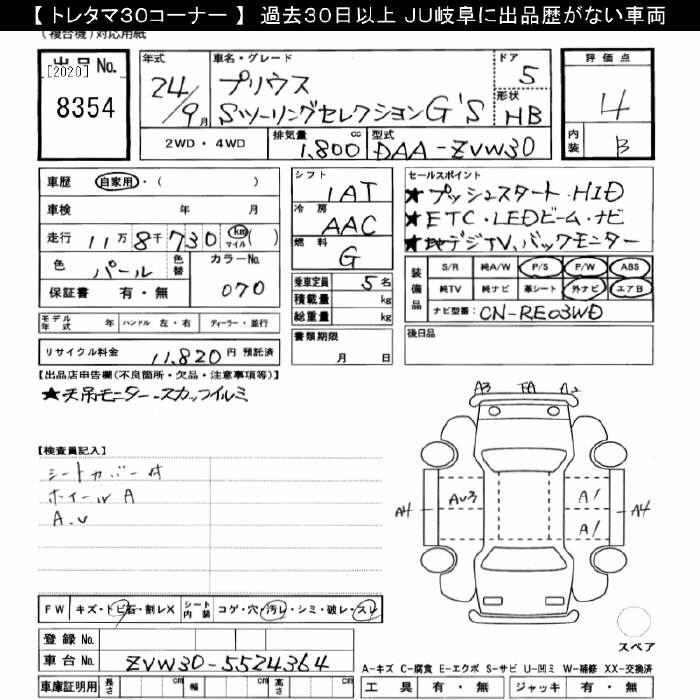 【 トレタマ30コーナー 】 過去30日以上 JU岐阜に出品歴がない車両
(複合機)対応用紙
出品No.
[2020]
8354
年式
24/9月
車名・グレード
プリウス
Sツーリングセレクション G'S
ドア
5
形状
HB
評価点
4
内装
B
2WD・4WD
排気量 cc
1,800
型式
DAA-ZVW30
車歴 自家用・( )
車検 年 月
走行 11万8千730 km マイル ( )
色 パール
色替
カラーNo.
070
保証書 有・無
モデル年式 年 ハンドル 左・右 ディーラー・並行
リサイクル料金 11,820円 預託済
シフト
1AT
冷房
AAC
燃料
G
乗車定員 5名
積載量 kg
総重量 kg
書類期限
月 日
セールスポイント
★プッシュスタート HID
★ETC・LEDビーム・ナビ
★地デジTV、バックモニター
装備品
S/R 純A/W P/S P/W ABS
純TV 純ナビ 革シート 外ナビ エアB
ナビ型番: CN-RE03WD
後日品
【出品店申告欄(不良箇所・欠品・注意事項等)】
★天吊モニター スカッフイルミ
【検査員記入】
シートカバー付
ホイール A
A.U
A3 FA A2
A4
AU3
A1
A1
A4
スペア
FW キズ・トビ石・割レX
シート内装 コゲ・穴・汚レ・シミ・破レ・スレ
登録No.
車台No. ZVW30-5524364
車庫証明用 長さ cm 幅 cm 高さ cm
A-キズ C-腐食 E-エクボ S-サビ U-凹ミ W-補修 XX-交換済
工具 有・無 ジャッキ 有・無